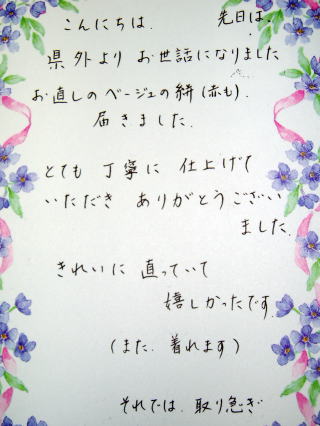 こんにちは.　先日は、
県外より お世話になりました
お直しのベージュの絣(赤も).
届きました.
とても 丁寧に 仕上げて
いただき ありがとうござい
ました.
きれいに 直っていて
嬉しかったです.
(また. 着れます)
それでは、取り急ぎ